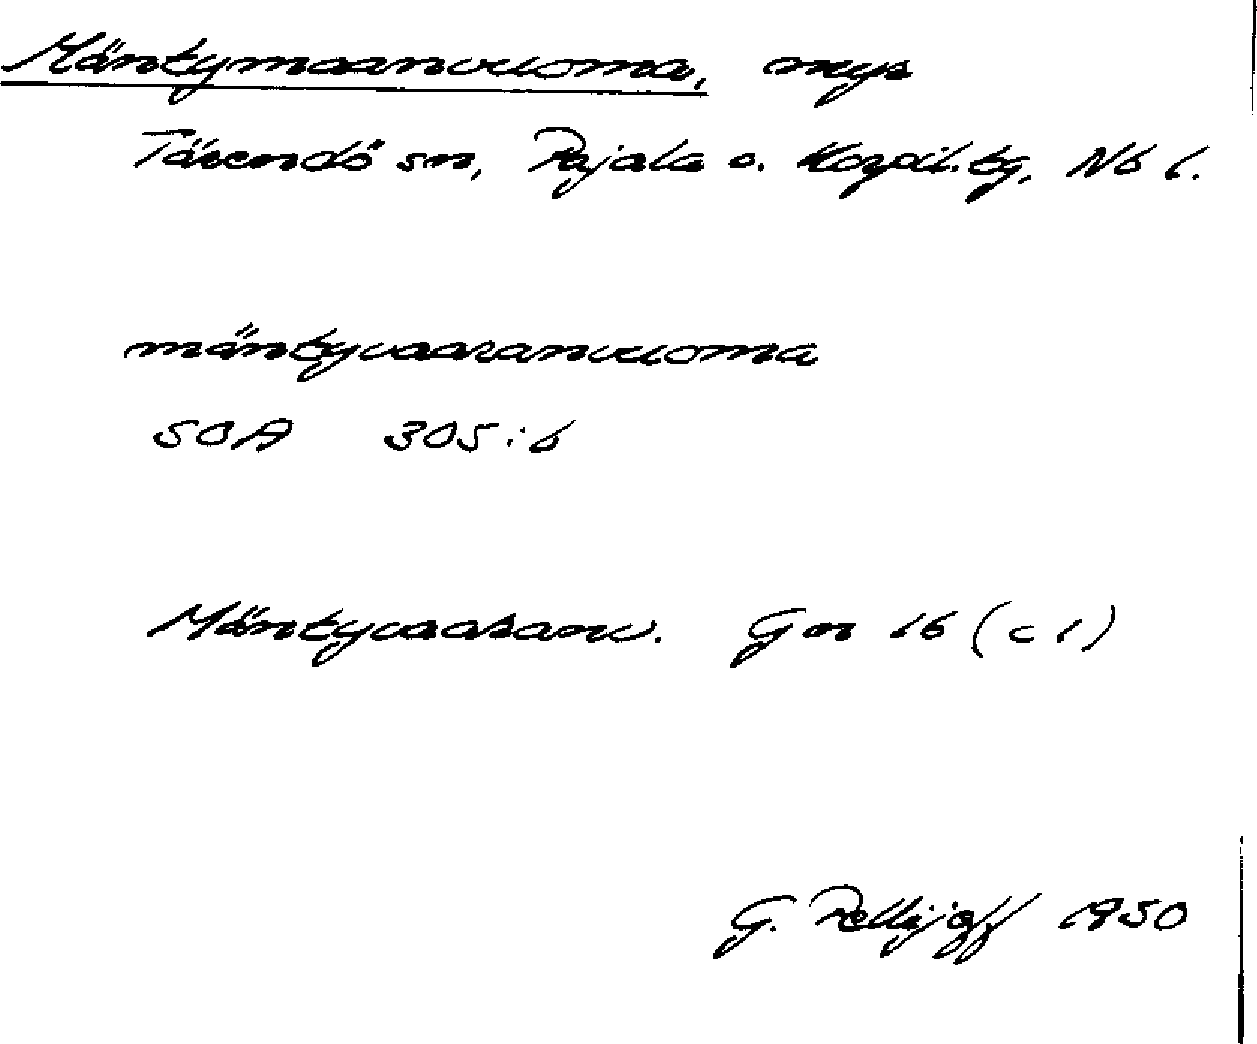 Mäntymaanvuoma, myr
Tärendö sn, Pajala o. Korpil. tg, Nb l.
mäntyvaaranvuoma
SOA 305:6
Mäntyvaaranv. Gm 16 (c 1)
G. Pellijeff 1950